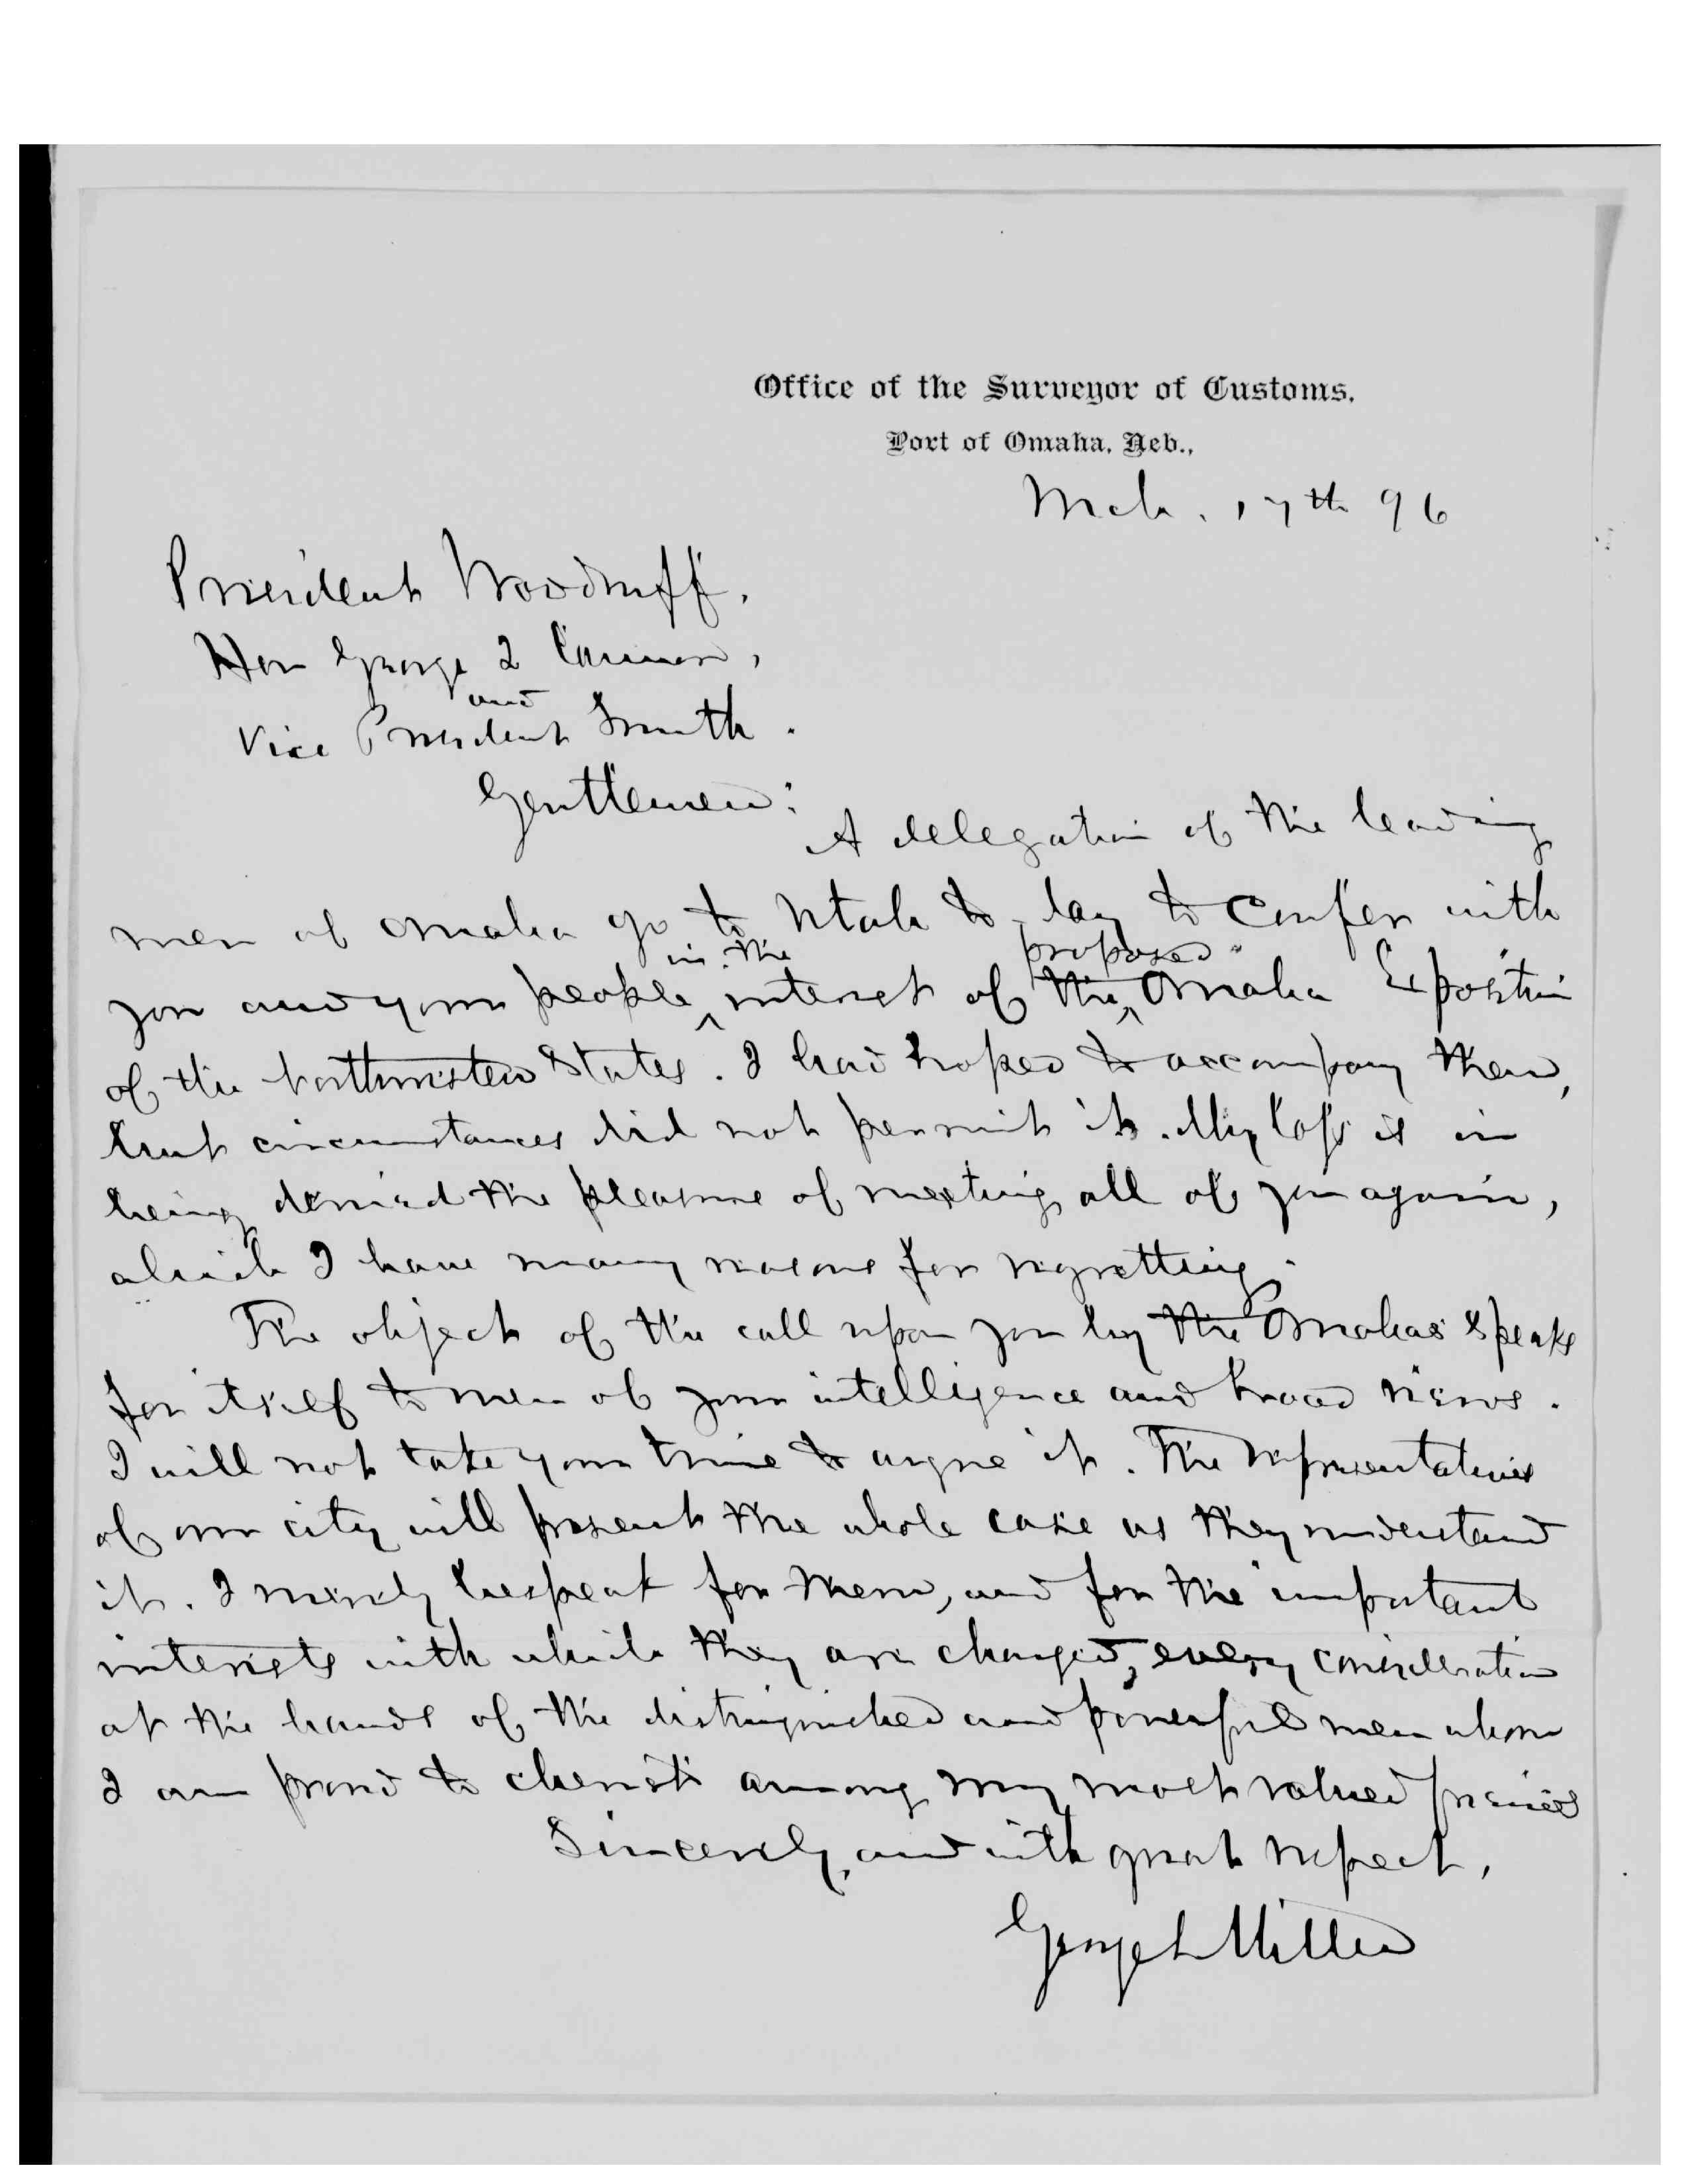 Office of the Surveyor of Customs.
Port of Omaha, Neb.,
Mch. 17th 96
President Woodruff.
Hon George Q Cannon,
and
Vice President Smith.
Gentlemen:
A delegation of the leading
men of Omaha go to Utah to-day to confer with
in the proposed
you and your people interest of the Omaha Exposition
of the Northwestern States. I had hoped to accompany them,
but circumstances did not permit it. My loss is in
being denied the pleasure of meeting all of you again,
which I have many reasons for regretting.
The object of the call upon you by the Omahas speaks
for itself to men of your intelligence and broad views.
I will not take your time to argue it. The representatives
of our city will present the whole case as they understand
it. I merely bespeak for them, and for the important
interests with which they are charged, every consideration
at the hands of the distinguished and powerful men whom
I am proud to cherish among my most valued friends
Sincerely, and with great respect,
George L Miller